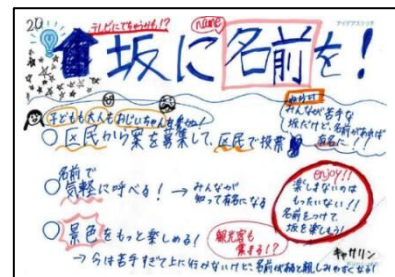 20
テレビにでちゃうかも!?
name
アイデアスケッチ
坂に名前を!
子どもも大人もおじいちゃんも
○区民から案を募集して、区民で投票
みんなが苦手な
坂だけど、名前があれば
有名に!!
名前で
気軽に呼べる! → みんなが
知って有名になる
enjoy!!
楽しまないのは
もったいない!!
名前をつけて
坂を楽しもう!
○景色をもっと楽しめる!
観光客も
来する!?
キャサリン